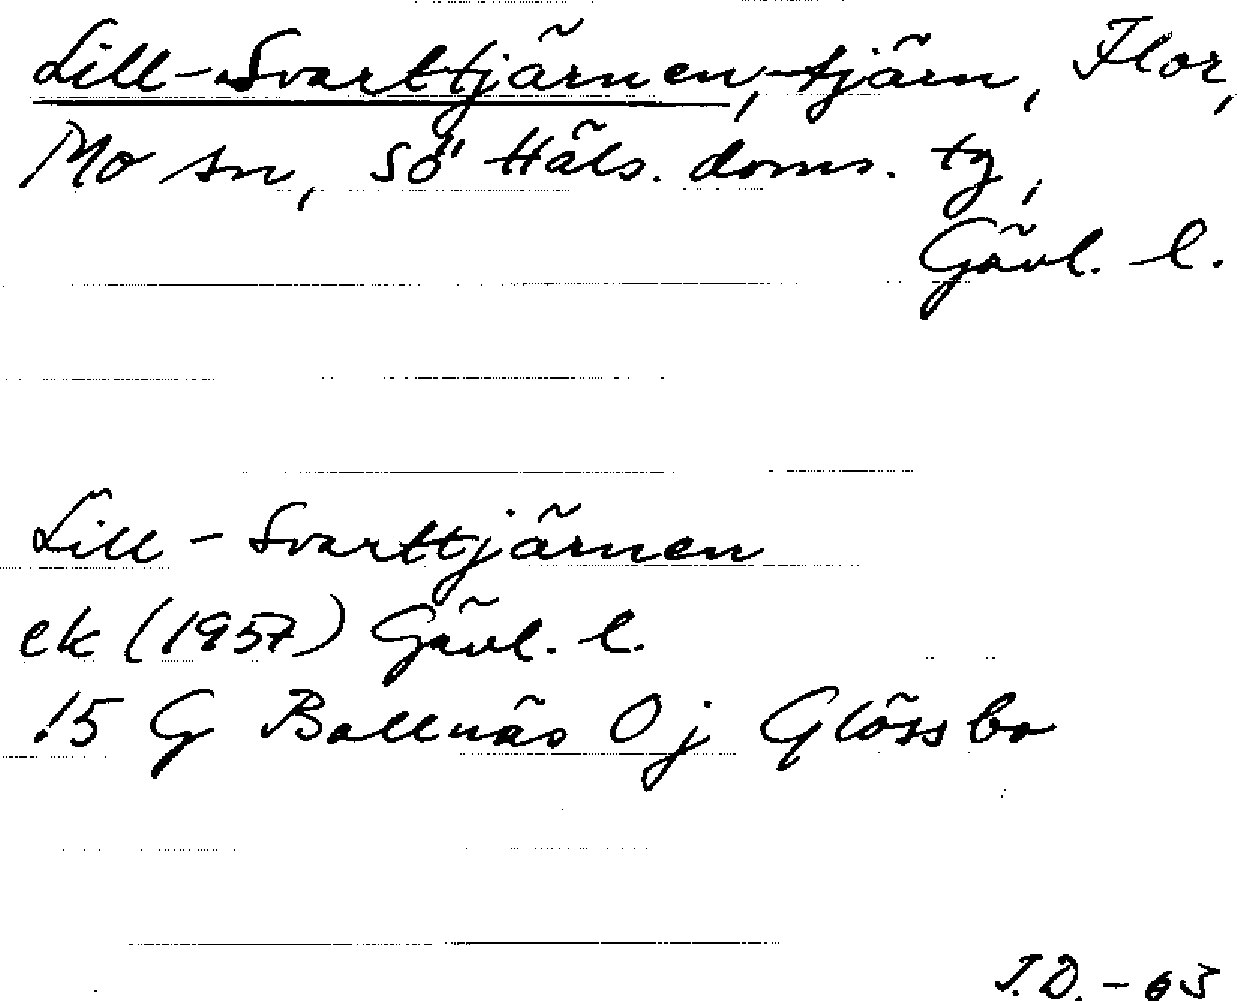 Lill-Svarttjärnen, tjärn, Flor,
Mo sn, Sö Häls. doms. tg,
Gävl. l.
Lill-Svarttjärnen
ek (1957) Gävl. l.
15 G Bollnäs 0 j Glössbo
J.D. - 65